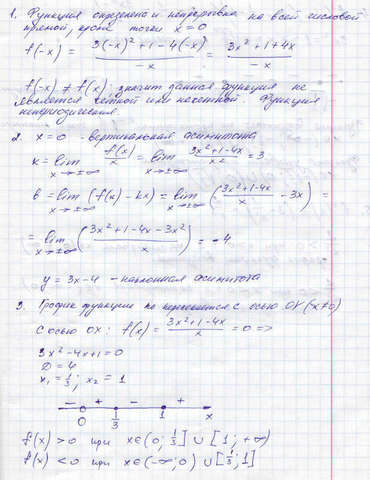 1. Функция определена и непрерывна на всей числовой
прямой, кроме точки x = 0
f(-x) = \frac{3(-x)^2+1-4(-x)}{-x} = \frac{3x^2+1+4x}{-x}
f(-x) ≠ f(x), значит данная функция не
является чётной или нечётной. Функция
непериодическая.
2. x = 0 - вертикальная асимптота
k = lim_{x→±∞} \frac{f(x)}{x} = lim_{x→±∞} \frac{3x^2+1-4x}{x^2} = 3
b = lim_{x→±∞} (f(x) - kx) = lim_{x→±∞} (\frac{3x^2+1-4x}{x} - 3x) =
= lim_{x→±∞} (\frac{3x^2+1-4x-3x^2}{x}) = -4
y = 3x-4 - наклонная асимптота
3. График функции не пересекается с осью OY (x≠0)
С осью OX: f(x) = \frac{3x^2+1-4x}{x} = 0 =>
3x^2-4x+1=0
D = 4
x_1 = \frac{1}{3}; x_2 = 1
- + - +
0 \frac{1}{3} 1 x
f(x) > 0 при x∈(0; \frac{1}{3}] ∪ [1; +∞)
f(x) < 0 при x∈(-∞; 0) ∪ [\frac{1}{3}; 1]